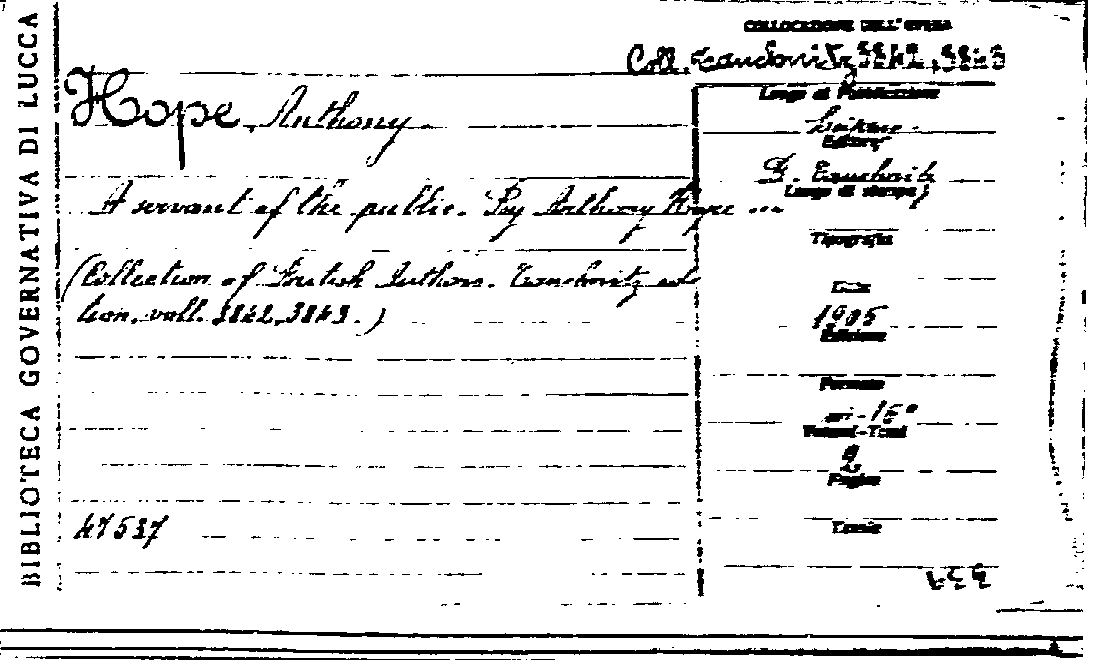 BIBLIOTECA GOVERNATIVA DI LUCCA
COLLOCAZIONE DELL'OPERA
Coll. Tauchnitz 3842, 3843
Hope, Anthony
A servant of the public. By Anthony Hope ...
(Collection of British Authors. Tauchnitz edi-
tion, voll. 3842, 3843.)
47537
Luogo di Pubblicazione
Editore
B. Tauchnitz
Luogo di stampa
Tipografia
Data
1905
Edizione
Formato
in-16°
Volumi-Tomi
2
Pagine
Tavole